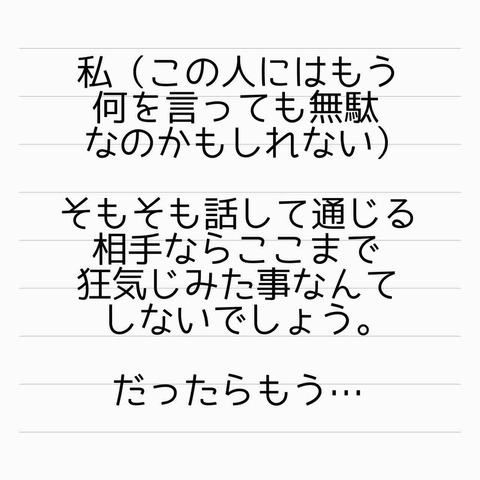 私（この人にはもう
何を言っても無駄
なのかもしれない）
そもそも話して通じる
相手ならここまで
狂気じみた事なんて
しないでしょう。
だったらもう…